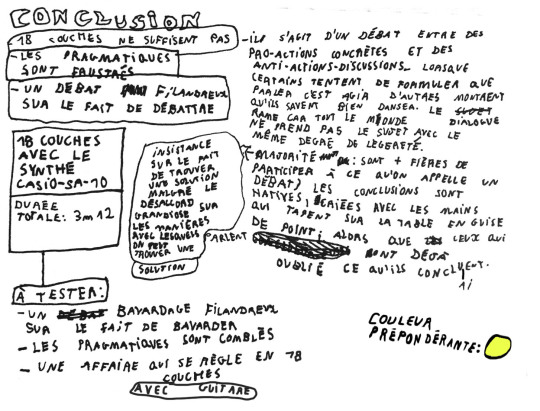 CONCLUSION
- 18 COUCHES NE SUFFISENT PAS
- LES PRAGMATIQUES
SONT FRUSTRÉS
- UN DÉBAT FILANDREUX
SUR LE FAIT DE DÉBATTRE
18 COUCHES
AVEC LE
SYNTHÉ
CASIO-SA-10
DURÉE
TOTALE: 3m12
INSISTANCE
SUR LE FAIT
DE TROUVER
UNE SOLUTION
MALGRÉ LE
DÉSACCORD SUR
GRANDIOSE
LES MANIÈRES
AVEC LESQUELS
ON PEUT
TROUVER UNE
SOLUTION
- ILS S'AGIT D'UN DÉBAT ENTRE DES
PRO-ACTIONS CONCRÈTES ET DES
ANTI-ACTIONS-DISCUSSIONS. LORSQUE
CERTAINS TENTENT DE FORMULER QUE
PARLER C'EST AGIR D'AUTRES MONTRENT
QU'ILS SAVENT BIEN DANSER. LE DIALOGUE
RAME CAR TOUT LE MONDE
NE PREND PAS LE SUJET AVEC LE
MÊME DEGRÉ DE LÉGÈRETÉ.
- MAJORITÉ : SONT + FIÈRES DE
PARTICIPER À CE QU'ON APPELLE UN
DÉBAT) LES CONCLUSIONS SONT
HATIVES, CRIÉES AVEC LES MAINS
QUI TAPENT SUR LA TABLE EN GUISE
DE POINT; ALORS QUE CEUX QUI
PARLENT ONT DÉJÀ
OUBLIÉ CE QU'ILS CONCLUENT.
À TESTER:
- UN BAVARDAGE FILANDREUX
SUR LE FAIT DE BAVARDER
- LES PRAGMATIQUES SONT COMBLÉS
- UNE AFFAIRE QUI SE RÈGLE EN 18
COUCHES
AVEC GUITARE
COULEUR
PRÉPONDÉRANTE: